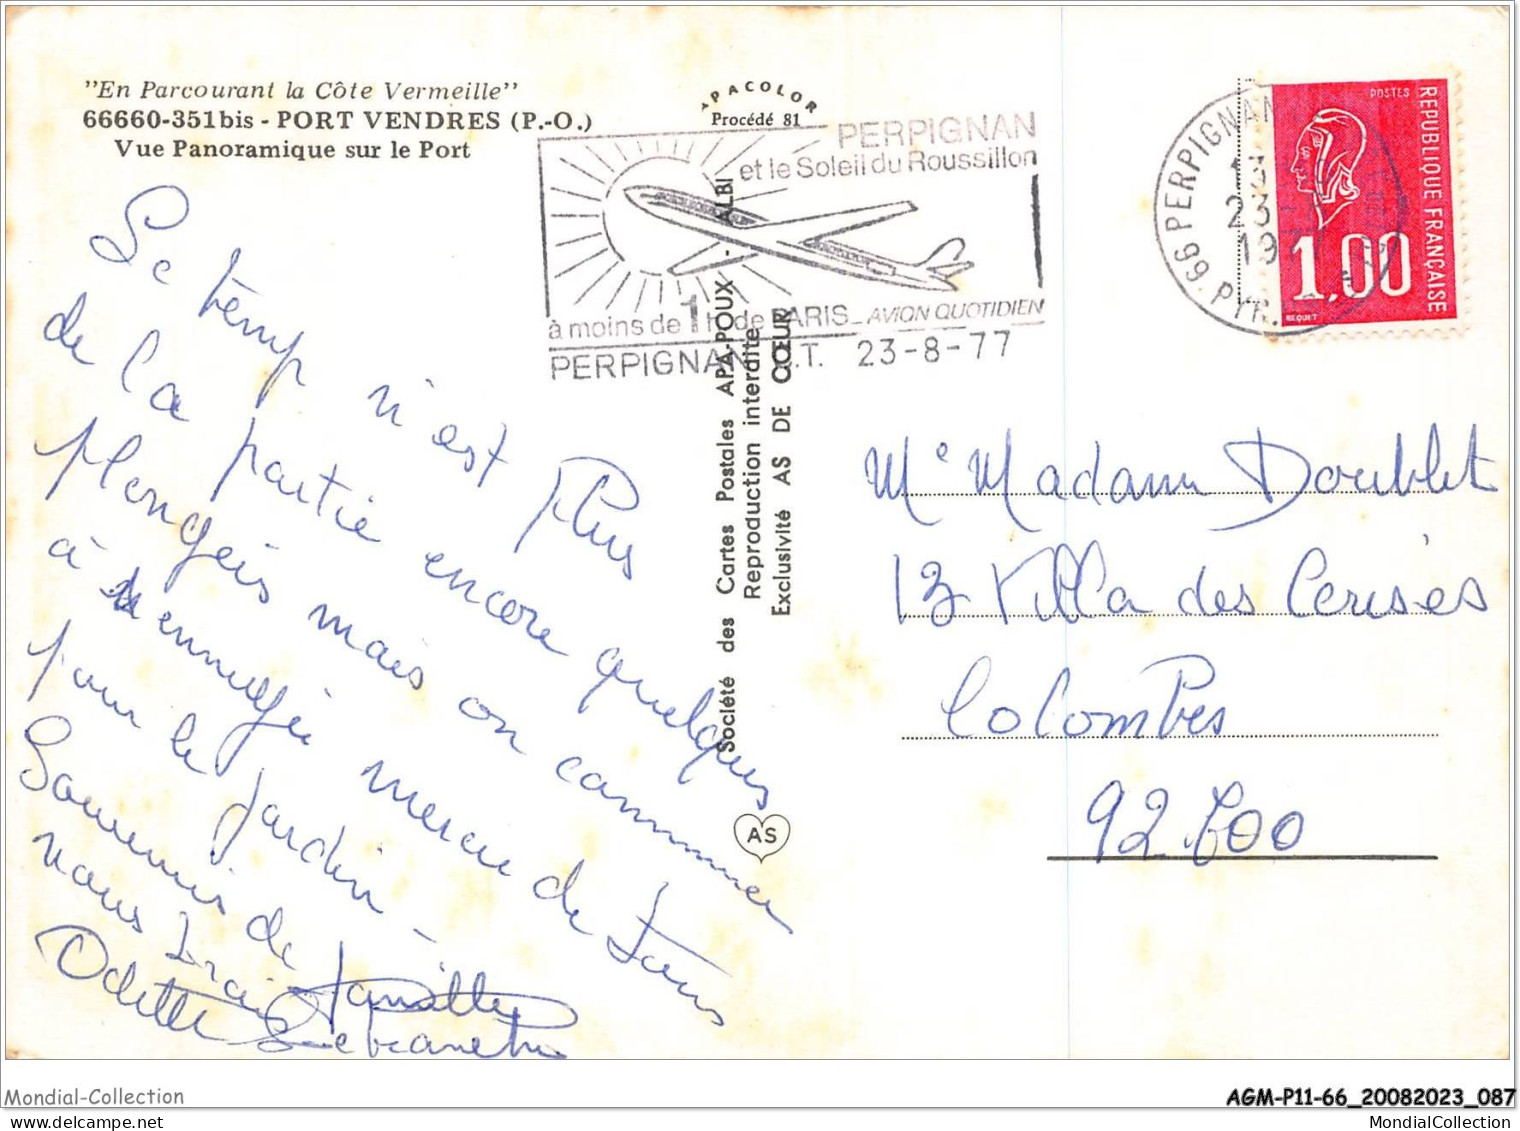 "En Parcourant la Côte Vermeille"
66660-351bis - PORT VENDRES (P.-O.)
Vue Panoramique sur le Port
APACOLOR
Procédé 81
PERPIGNAN
et le Soleil du Roussillon
à moins de 1h de PARIS - AVION QUOTIDIEN
PERPIGNAN .T. 23-8-77
66 PERPIGNAN
13
23-
1977
PYR.
POSTES
REPUBLIQUE FRANÇAISE
1,00
BEQUET
Société des Cartes Postales APA-POUX - ALBI
Reproduction interdite
Exclusivité AS DE CŒUR
AS
Le temps n'est Plus
de la partie encore quelques
plongeis mais on commmence
à ennuyée
pour le jardin -
Souvenirs de
nous trois
Odette
Me Madame Doublet
13 Villa des Cerises
Colombes
92600
Mondial-Collection
AGM-P11-66_20082023_087
MondialCollection